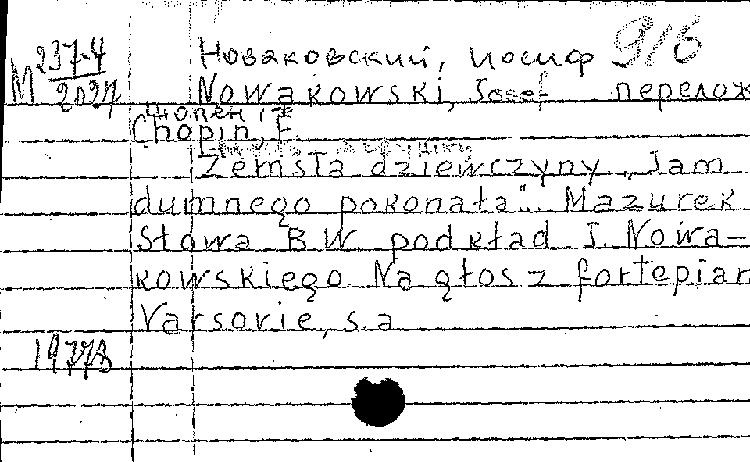 М 237-4/2027
Новаковский, Иосиф 916
Nowakowski, Josef перелож
Шопен, Ф
Chopin, F.
Zemsta dziewczyny „Jam
dumnego pokonała". Mazurek
Słowa B.W podkład I. Nowa-
kowskiego Na głos z fortepian
Varsovie, s.a